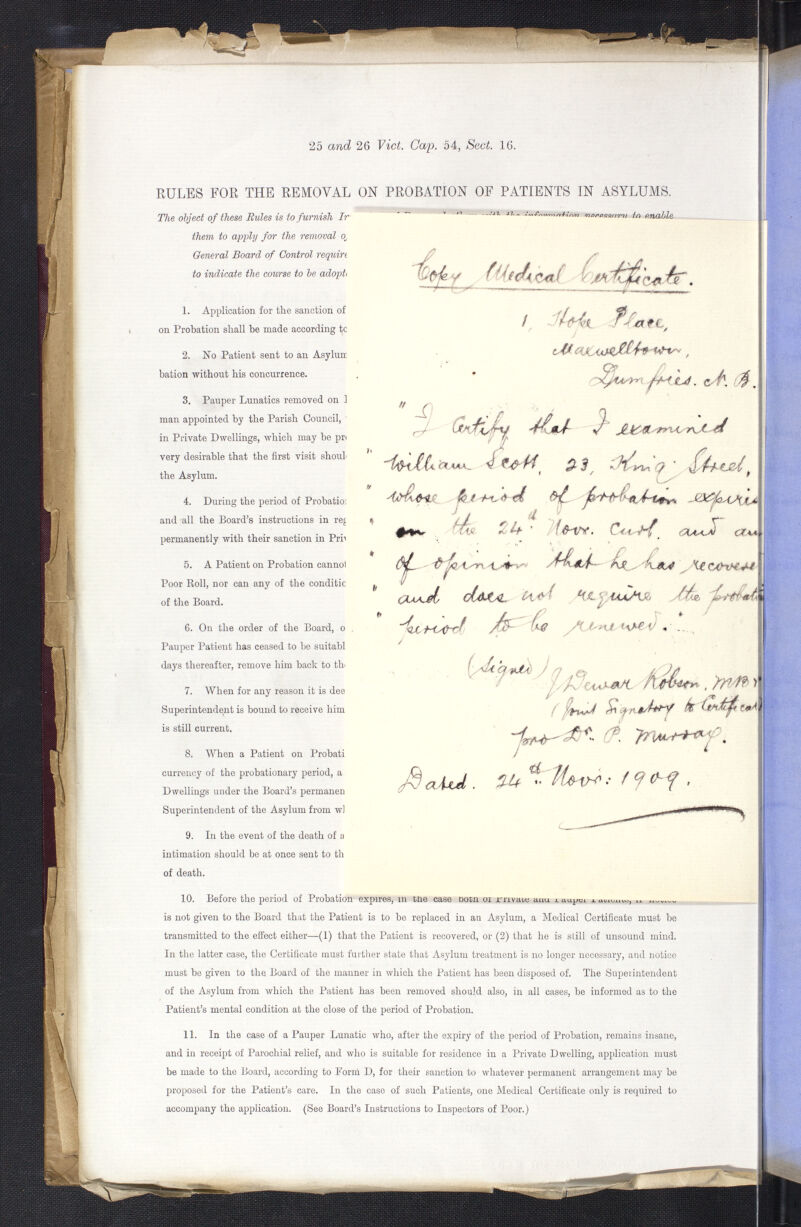 25 and 26 Vict. Cap. 54, Sect. 16.
RULES FOR THE REMOVAL ON PROBATION OF PATIENTS IN ASYLUMS.
The object of these Rules is to furnish information necessary to enable
them to apply for the removal
General Board of Control
to indicate the course to be
1. Application for the sanction of
on Probation shall be made according
2. No Patient sent to an
bation without his concurrence.
3. Pauper Lunatics removed on
man appointed by the Parish Council,
in Private Dwellings, which may be
very desirable that the first visit
the Asylum.
4. During the period of
and all the Board's instructions in
permanently with their sanction in
5. A Patient on Probation
Poor Roll, nor can any of the
of the Board.
6. On the order of the Board,
Pauper Patient has ceased to be
days thereafter, remove him back to
7. When for any reason it is
Superintendent is bound to receive him
is still current.
8. When a Patient on
currency of the probationary period, a
Dwellings under the Board's
Superintendent of the Asylum from
9. In the event of the death of
intimation should be at once sent to
of death.
Copy Medical Certificate.
1, Hope Place,
Maxwelltown,
Dumfries. N. B.
" I Certify that I examined
" William Scott, 23, King Street,
" whose period of probation
" on the 24th Novr. Curt. and
" of opinion that he has
" and does not require the
" period to be renewed."
(Signed) J Dewar Robson,
(Joint Signatory to
pro Dr. P. Murray.
Dated. 24th Novr: 1909.
10. Before the period of Probation expires, in the case both of Private and Pauper Patients, if notice
is not given to the Board that the Patient is to be replaced in an Asylum, a Medical Certificate must be
transmitted to the effect either—(1) that the Patient is recovered, or (2) that he is still of unsound mind.
In the latter case, the Certificate must further state that Asylum treatment is no longer necessary, and notice
must be given to the Board of the manner in which the Patient has been disposed of. The Superintendent
of the Asylum from which the Patient has been removed should also, in all cases, be informed as to the
Patient's mental condition at the close of the period of Probation.
11. In the case of a Pauper Lunatic who, after the expiry of the period of Probation, remains insane,
and in receipt of Parochial relief, and who is suitable for residence in a Private Dwelling, application must
be made to the Board, according to Form D, for their sanction to whatever permanent arrangement may be
proposed for the Patient's care. In the case of such Patients, one Medical Certificate only is required to
accompany the application. (See Board's Instructions to Inspectors of Poor.)